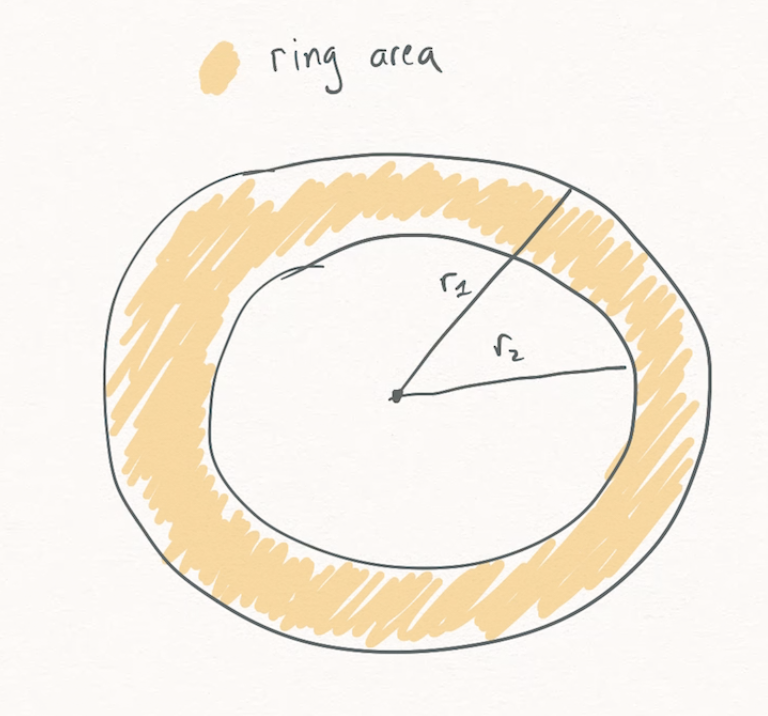 ring area
r1
r2